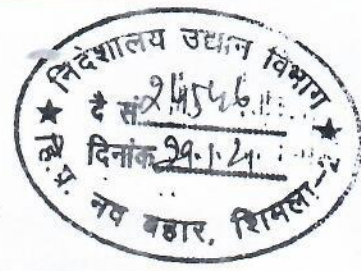 निदेशालय उद्यान विभाग
दै सं
दिनांक 29.1.21
हि.प्र. नव बहार, शिमला-2